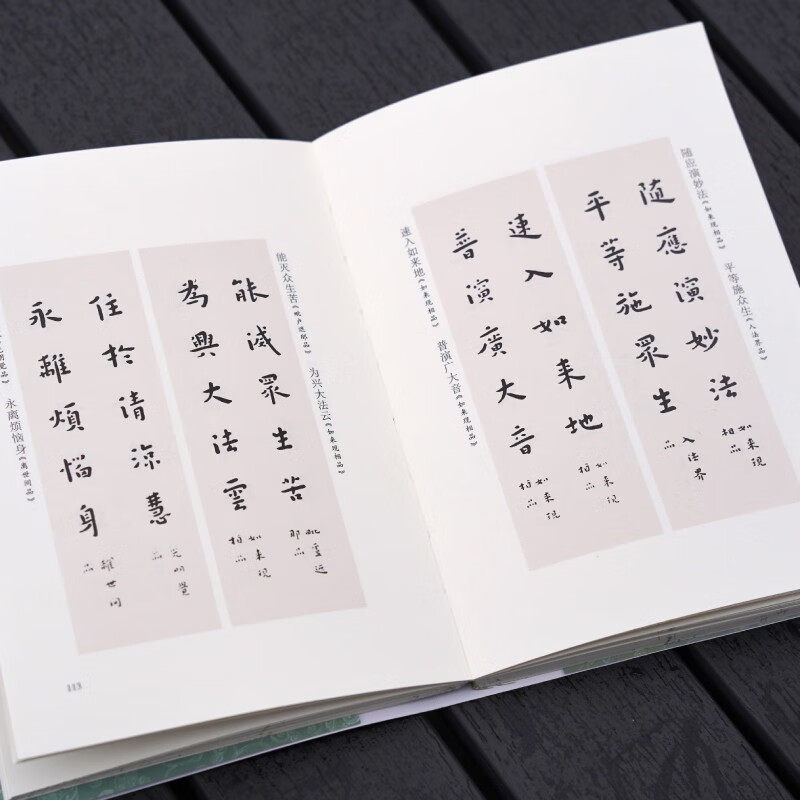 随应演妙法《如来现相品》
平等施众生《入法界品》
随應演妙法
如来現
相品
平等施眾生
入法界
品
速入如来地
如来現
相品
普演廣大音
如来現
相品
速入如来地《如来现相品》
普演广大音《如来现相品》
能灭众生苦《毗卢遮那品》
为兴大法云《如来现相品》
能滅眾生苦
毗盧遮
那品
為興大法雲
如来現
相品
住於清涼慧
光明覺
品
永離煩惱身
離世间
品
永离烦恼身《离世间品》
113